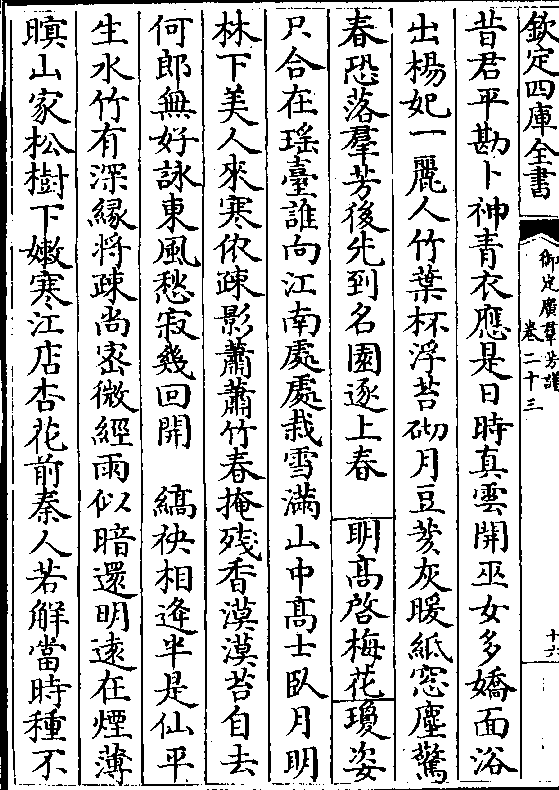 欽定四庫全書
御定廣羣芳譜
卷二十三
十六
昔君平勘卜神青衣應是日時真雲開巫女多嬌面浴
出楊妃一麗人竹葉杯浮苔砌月豆萁灰暖紙窓塵驚
春恐落羣芳後先到名園逐上春 明髙啓梅花瓊姿
只合在瑶臺誰向江南處處栽雪滿山中髙士臥月明
林下美人來寒依疎影蕭蕭竹春掩殘香漠漠苔自去
何郎無好詠東風愁寂幾回開 縞袂相逄半是仙平
生水竹有深縁將疎尚宻微經雨似暗還明逺在煙薄
暝山家松樹下嫩寒江店杏花前秦人若解當時種不